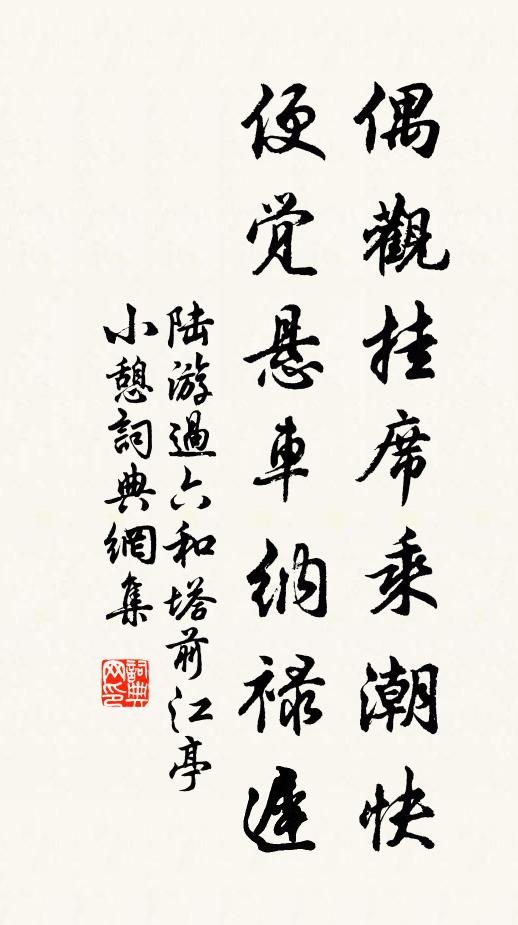 偶觀挂席乘潮快
便覺悬車納禄遲
陆游過六和塔前江亭
小憩詞典網集
詞典网印